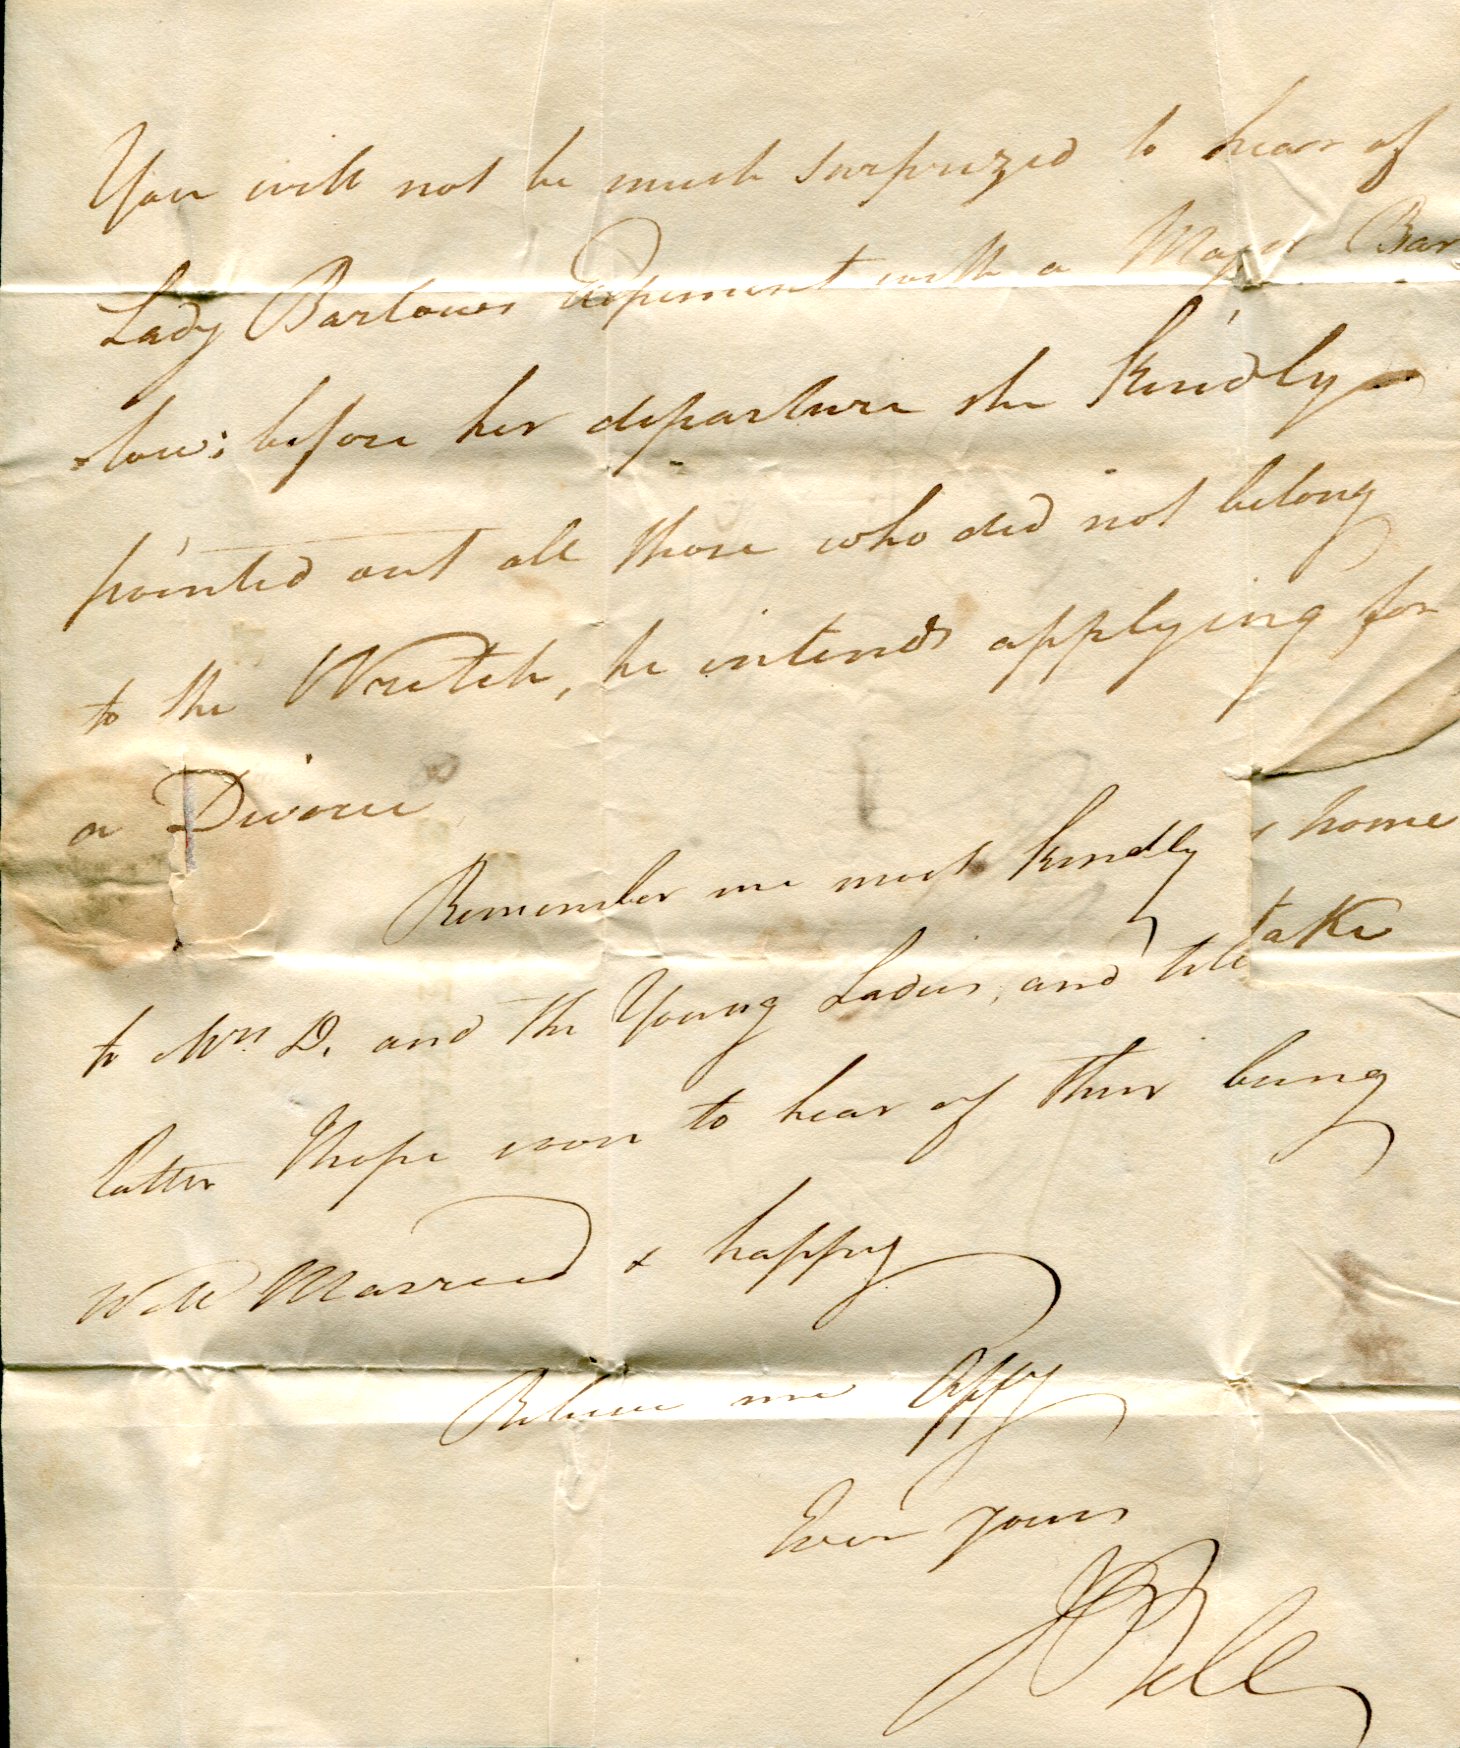 You will not be much surprized to hear of
Lady Barlows Elopement with a Major Bar
=low; before her departure she kindly
pointed out all those who did not belong
to the Wretch, he intends applying for
a Divorce
Remember me most kindly
home
take
to Mrs D. and the Young Ladies, and tell
latter I hope soon to hear of their being
Well Married & happy
Believe me Affy
Ever yours
J Bell